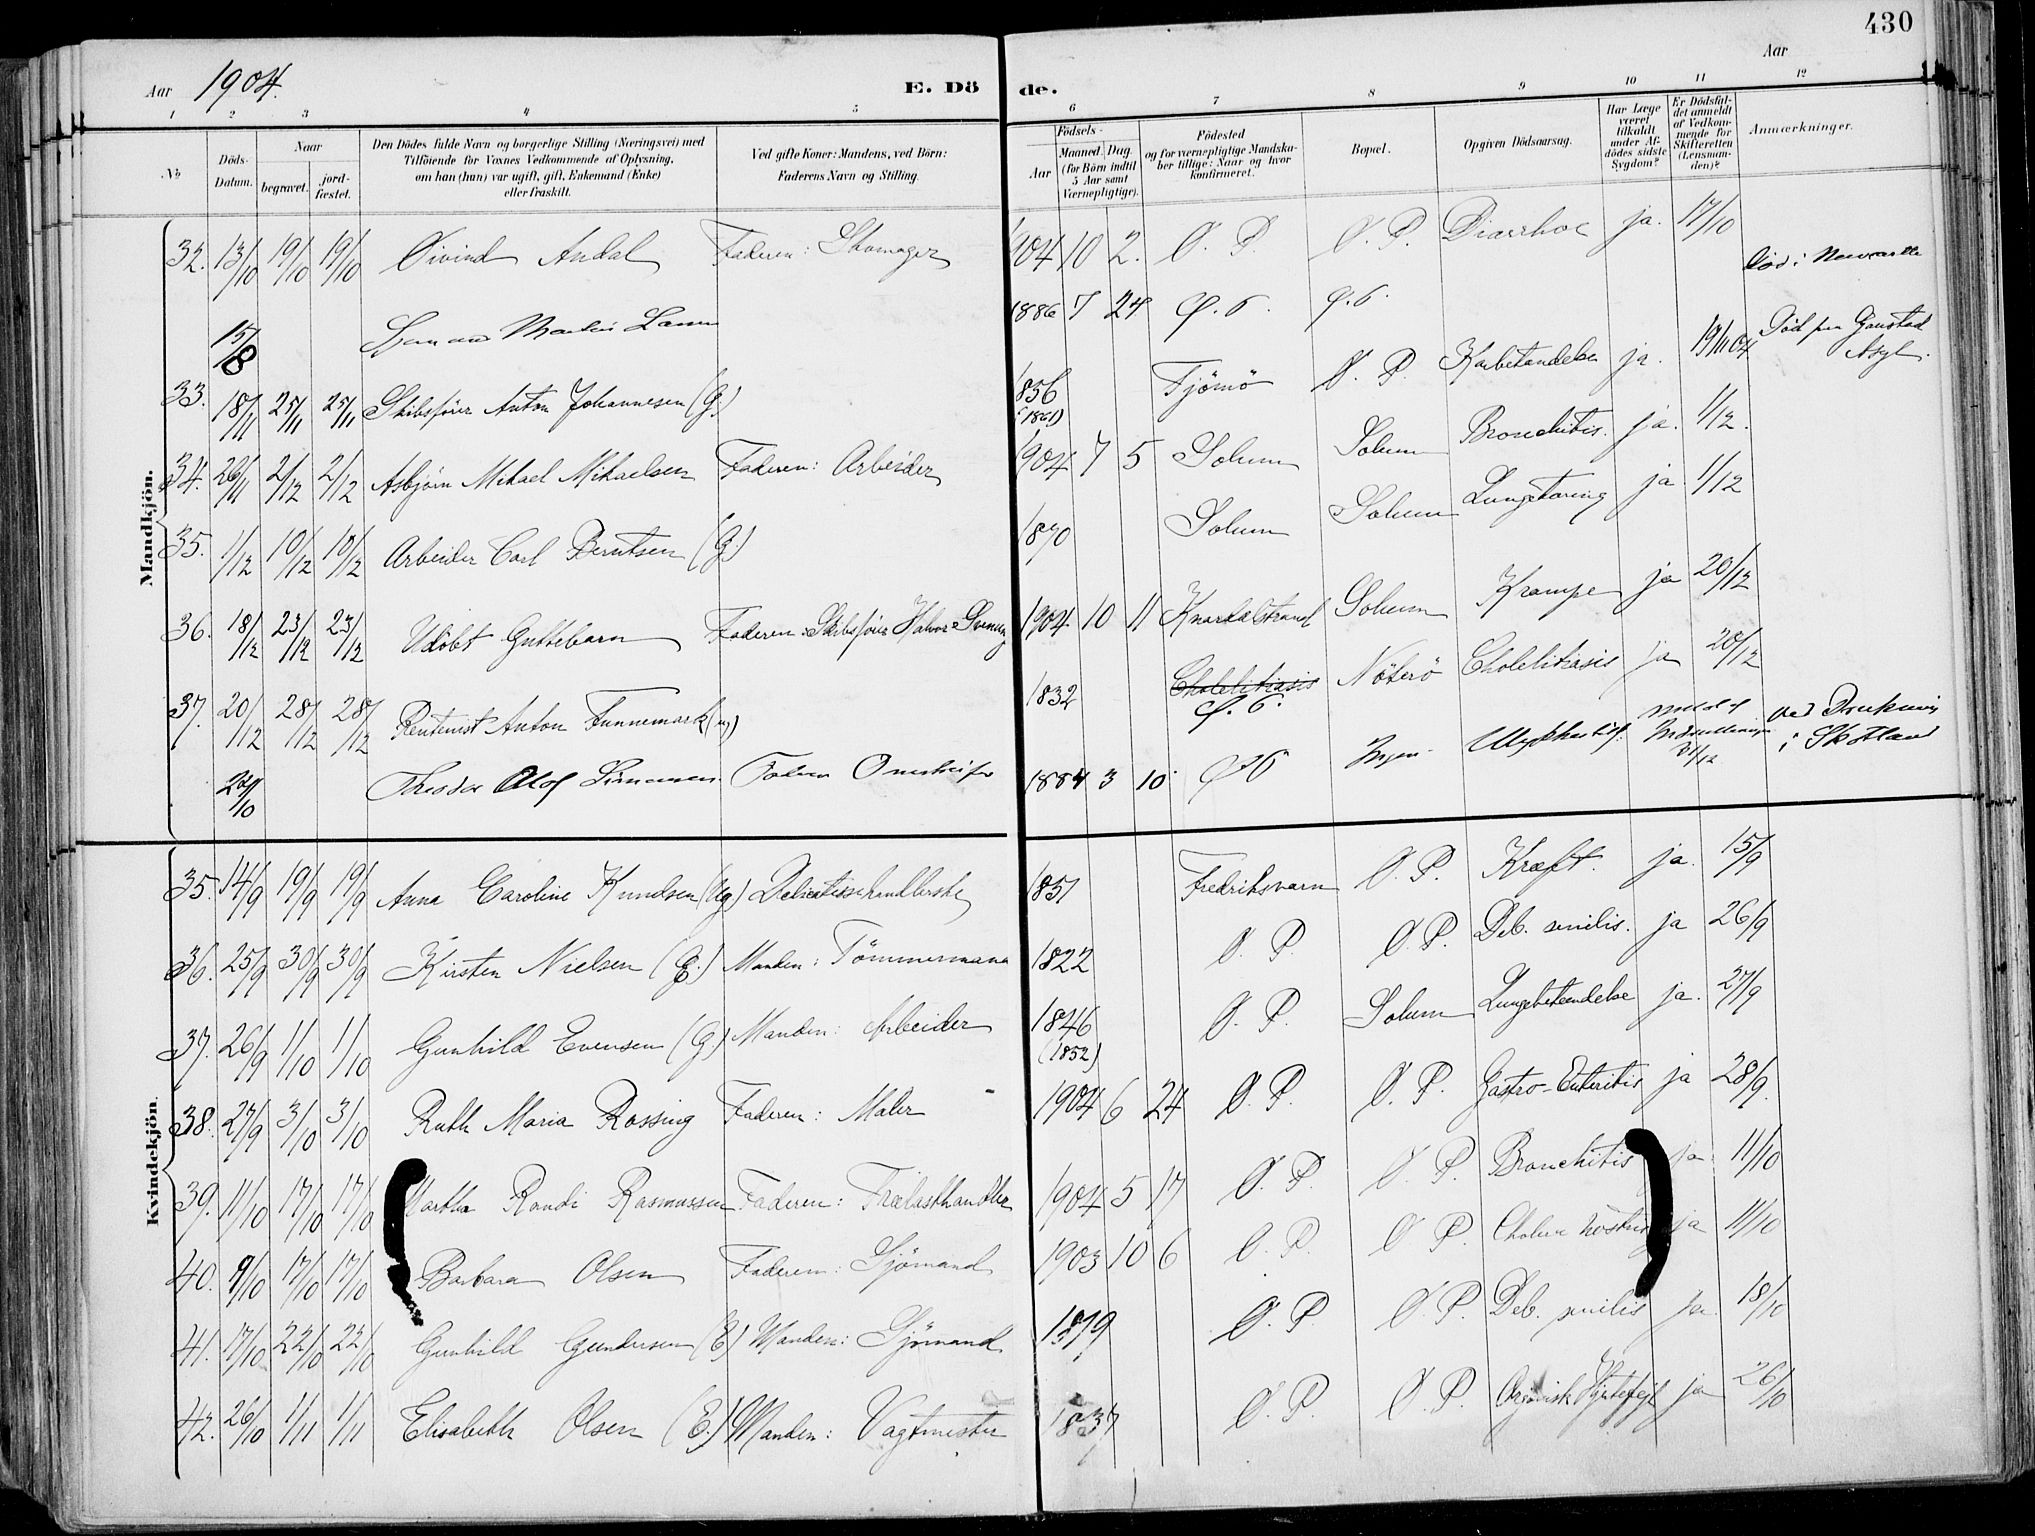 430
Aar 1904. E. Döde. Aar
1 2 3 4 5 6 7 8 9 10 11 12
No
Döds-Datum.
Naar
begravet.
jord-fæstet.
Den Dödes fulde Navn og borgerlige Stilling (Næringsvei) med
Tilföiende for Voxnes Vedkommende af Oplysning,
om han (hun) var ugift, gift, Enkemand (Enke)
eller fraskilt.
Ved gifte Koner: Mandens, ved Börn:
Faderens Navn og Stilling.
Födsels-
Aar
Maaned. Dag.
(for Börn indtil
5 Aar samt
Værnepligtige).
Födested
og for værnepligtige Mandska-
ber tillige: Naar og hvor
konfirmeret.
Bopæl.
Opgiven Dödsaarsag.
Har Læge
været
tilkaldt
under Af-
dödes sidste
Sygdom?
Er Dödsfal-
det anmeldt
af Vedkom-
mende for
Skifteretten
(Lensman-
den)?
Anmærkninger.
Mandkjön.
32. 13/10 19/10 19/10 Øivind Andal Faderen: Skomager 1904 10 2. Ø. P. Ø. P. Diarrhoe ja. 17/10
15/8 Martin 1886 7 24 Død i Newcastle
33. 18/11 25/11 25/11 Skibsfører Anton Johannesen (G.) 1856 (1861) Tjømø Ø. P. ja. 19/11 04 Død paa Gaustad Asyl.
34. 26/11 2/12 2/12 Asbjørn Mikael Mikaelsen Faderen: Arbeider 1904 7 5 Solum Solum Bronchitis. ja. 1/12.
35. 1/12 10/12 10/12 Arbeider Carl Berntsen (G.) 1870 Solum Solum Lungetæring ja 1/12
36. 18/12 23/12 23/12 Udøbt Guttebarn Faderen: Skibsfører Halvor 1904 10 11 Knardalstrand Solum Krampe ja 20/12
37. 20/12 28/12 28/12 Rentenist Anton Funnemark 1832 Cholelitiasis Nøterø Cholelitiasis ja 20/12
27/10 Theodor Olof 1884 3 10 i Skotland
Kvindekjön.
35. 14/9 19/9 19/9 Anna Caroline Knudsen (Ug) Delicatessehandlerske 1851 Fredriksværn Ø. P. Kræft. ja. 15/9
36. 25/9 30/9 30/9 Kirsten Nielsen (E.) Manden: Tømmermand 1822 Ø. P. Ø. P. Deb. senilis. ja 26/9
37. 26/9 1/10 1/10 Gunhild Evensen (G.) Manden: Arbeider 1846 (1852) Ø. P. Solum Lungebetændelse ja. 27/9
38. 27/9 3/10 3/10 Ruth Maria Rossing Faderen: Maler 1904 6 24 Ø. P. Ø. P. Gastro-Enteritis ja 28/9.
39. 11/10 17/10 17/10 Martha Randi Rasmussen Faderen: Trælasthandler 1904 5 17 Ø. P. Ø. P. Bronchitis ja 11/10
40. 9/10 17/10 17/10 Barbara Olsen Faderen: Sjømand 1903 10 6 Ø. P. Ø. P. Cholera nostras ja 11/10
41. 17/10 22/10 22/10 Gunhild Gundersen (E) Manden: Sjømand Ø. P. Ø. P. Deb. senilis ja 18/10
42. 26/10 1/11 1/11 Elisabeth Olsen (E.) Manden: Vagtmester 1837 Ø. P. Ø. P. Organisk Hjertefejl ja 26/10